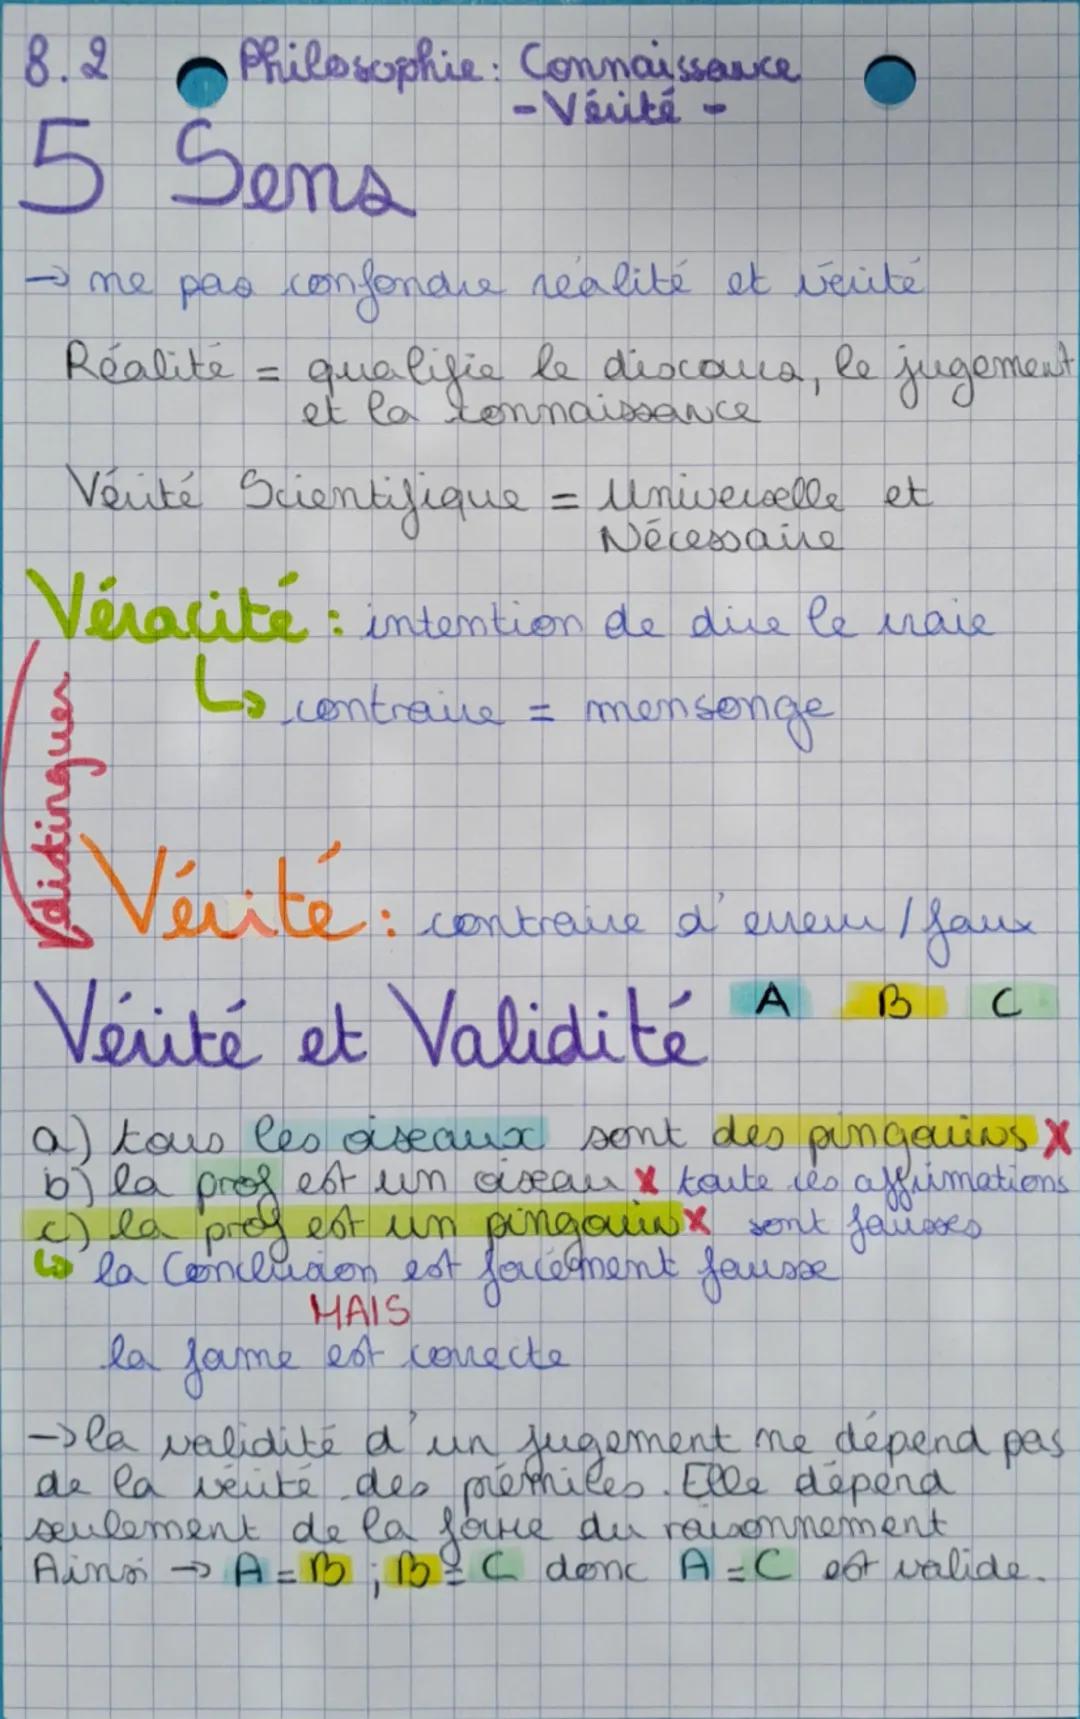 8.2 Philosophie : Connaissance
- Vérité -
5 Sens
→ ne pas confondre réalité et vérité
Réalité = qualifie le discours, le jugement
et la connaissance
Vérité Scientifique = Universelle et
Nécessaire
Véracité : intention de dire le vraie
↳ contraire = mensonge
distinguer
Vérité : contraire d'erreur / faux
Vérité et Validité A B C
a) tous les oiseaux sont des pingouins X
b) la prof est un oiseau X toute les affirmations
c) la prof est un pingouin X sont fausses
↳ la Conclusion est forcément fausse
MAIS
la forme est correcte
→ la validité d'un jugement ne dépend pas
de la vérité des prémices. Elle dépend
seulement de la forme du raisonnement
Ainsi → A = B ; B = C donc A = C est valide.